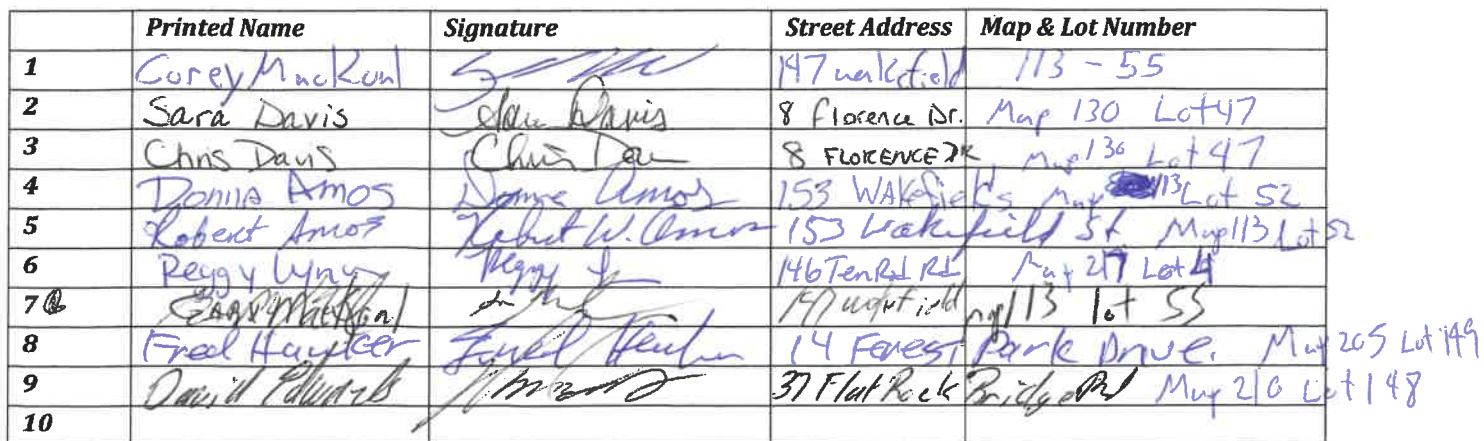 Printed Name Signature Street Address Map & Lot Number
1 Corey 147 wakefield 113 - 55
2 Sara Davis Sara Davis 8 Florence Dr. Map 130 Lot 47
3 Chris Davis Chris 8 FLORENCE DR Map 130 Lot 47
4 Donna Amos Donna Amos 153 WAkefield Map 113 Lot 52
5 Robert Amos Robert W. Amos 153 Wakefield St Map 113 Lot 52
6 Peggy Lynn Peggy 146 Ten Rd Rd Map 217 Lot 4
7 147 wakefield map 113 lot 55
8 Fred Fred 14 Forest Park Drive. Map 205 Lot 149
9 David Edwards 37 Flat Rock Bridge Rd Map 210 Lot 148
10